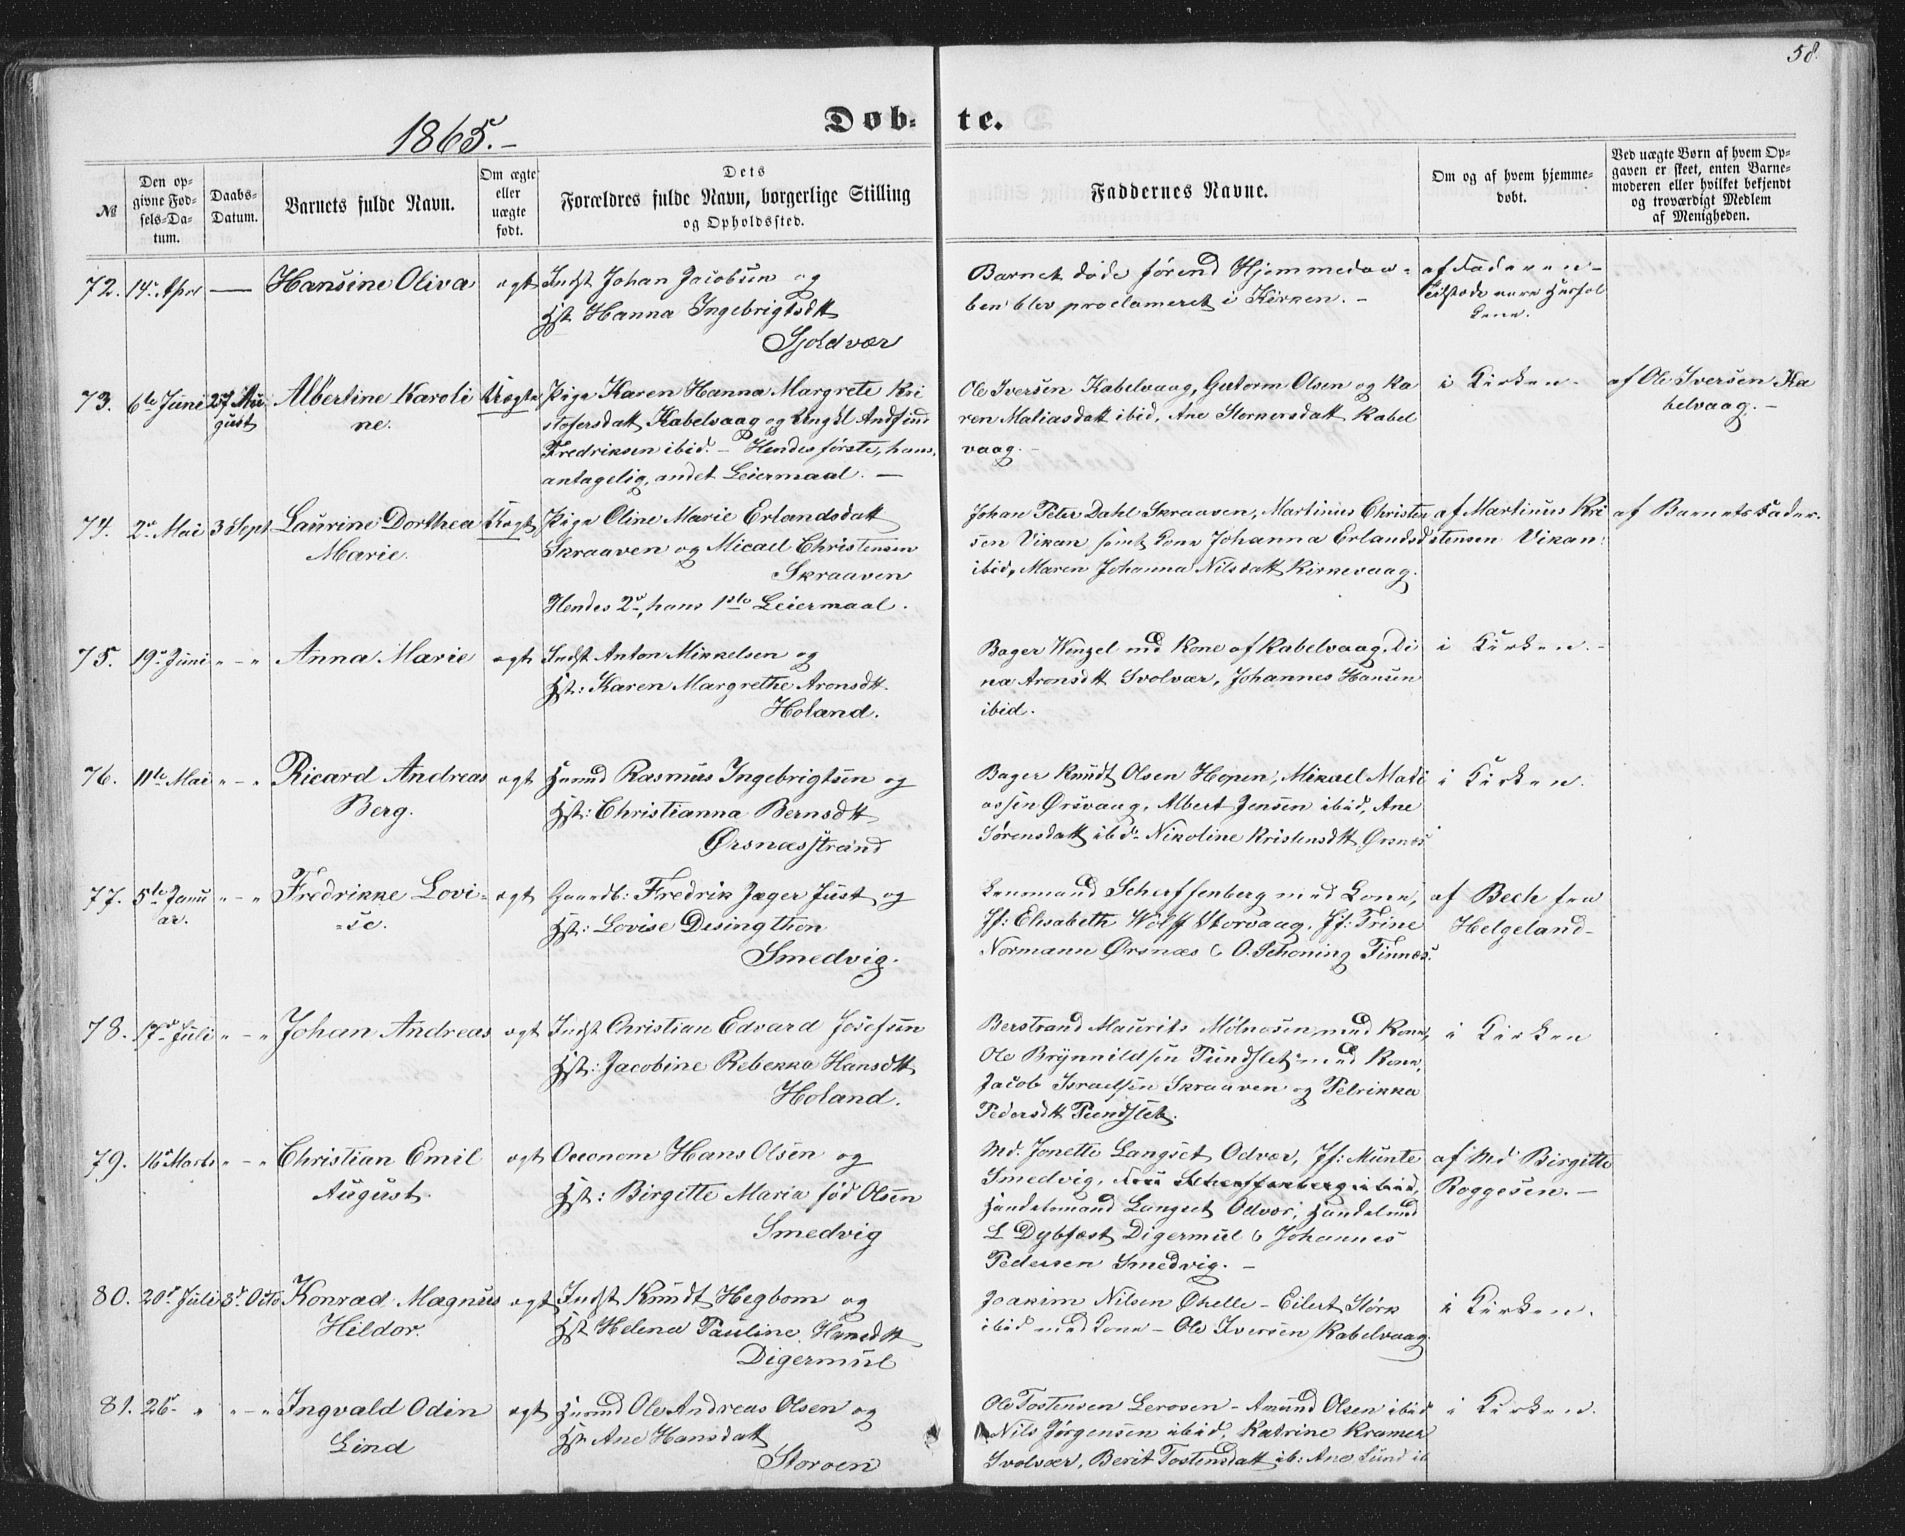 58.
1865.-
Døb- te.
№
Den op-
givne Fød-
sels-Da-
tum.
Daabs-
Datum.
Barnets fulde Navn.
Om ægte
eller
uægte
født.
Dets
Forældres fulde Navn, borgerlige Stilling
og Opholdssted.
Faddernes Navne.
Om og af hvem hjemme-
døbt.
Ved uægte Børn af hvem Op-
gaven er skeet, enten Barne-
moderen eller hvilket bekjendt
og troværdigt Medlem
af Menigheden.
72. 14r April — Hansine Oliva ægt Indst Johan Jacobsen og
Hst Hanna Ingebrigtsdtt
Sjoldvær
Barnet døde førend Hjemmedaa-
ben blev proclameret i Kirken. -
af Faderen -
tilstede vare Husfol
kene.
73. 6te Juni 27 Au
gust
Albertine Karoli
ne.
Uægte Pige Karen Hanna Margrete Kri
stofersdatt Kabelvaag og Ungkl Andfind
Fredriksen ibid. - Hendes første, hans,
antagelig, andet Leiermaal. —
Ole Iversen Kabelvaag, Guttorm Olsen og Ka
ren Matiasdatt ibid, Ane Stornersdatt Kabel
vaag. -
i Kirken.
af Ole Iversen Ka
belvaag. -
74. 2r Mai 3 Sept Laurine Dorthea
Marie.
Uægt Pige Oline Marie Erlandsdatt
Skraaven og Micael Christensen
Skraaven
Hendes 2r, hans 1ste Leiermaal.
Johan Peter Dahl Skraaven, Martinus Christen
sen Vikan samt Kone Johanna Erlandsd
ibid, Maren Johanna Nilsdatt Kirkevaag.
af Martinus Kri
stensen Vikan.
af Barnets Fader.
75. 19r Juni " - " Anna Marie ægt Indst Anton Mikkelsen og
Hst: Karen Margrethe Aronsdtt.
Holand.
Bager Wenzel med Kone af Kabelvaag, Li
na Aronsdtt Svolvær, Johannes Hansen
ibid.
i Kirken. -
76. 11te Mai " - " Ricard Andreas
Berg.
ægt Huusmd Rasmus Ingebrigtsen og
Hst: Christianna Berndtt
Ørsnæsstrand
Bager Knudt Olsen Hopen, Mikael Madi
assen Ørsvaag, Albert Jensen ibid, Ane
Sørensdatt ibid. Nikoline Kristensdtt Ørsnæs
i Kirken.
77. 5te Janu
ar.
" - " Fredrikke Lovi-
-se.
ægt Gaardb: Fredrik Jæger Just og
Hst: Lovise Desingthon
Smedvig.
Lensmand Scherffenberg med Kone,
Jf: Elisabeth Wolff Storvaag, Jf: Trine
Normann Ørsnæs & O. Schoning Finnæs.
af Bech fra
Helgeland-
78. 17d Juli " - " Johan Andreas ægt Indst Christian Edvard Josefsen
Hst: Jacobine Rebekka Hansdtt
Holand.
Berstrand Maurits Mølnosen med Kone,
Ole Brynnildsen Pundslet med Kone,
Jacob Israelsen Skraaven og Petrikka
Pedersdtt Pundslet.
i Kirken
79. 16r Marts " - " Christian Emil
August.
ægt Oeconom Hans Olsen og
Hst: Birgitte Maria fød Olsen
Smedvig
Md. Jonette Langset Odvær, Jf: Munte
Smedvig, Fru Scherffenberg ibid,
Handelsmand Langset Odvær, Handelsmd
L Dybfest Digermul & Johannes
Pedersen Smedvig. -
af Md Birgitte
Roggesen. -
80. 20d Juli 8d Octo Konrad Magnus
Hildor.
ægt Indst Knudt Hegbom og
Hst Helena Pauline Hansdtt
Digermul
Joakim Nilsen Øhelle - Eilert Størk
ibid med Kone - Ole Iversen Kabelvaag
i Kirken.
81. 26r " " - " Ingvald Odin
Lind
ægt Huusmd Ole Andreas Olsen og
Hst Ane Hansdatt
Storøen
Ole Tostensen Lerosen - Amund Olsen ibid
Nils Jørgensen ibid, Katrine Kramer
Svolvær, Berit Tostensdatt ib: Ane Lund ib
i Kirken.